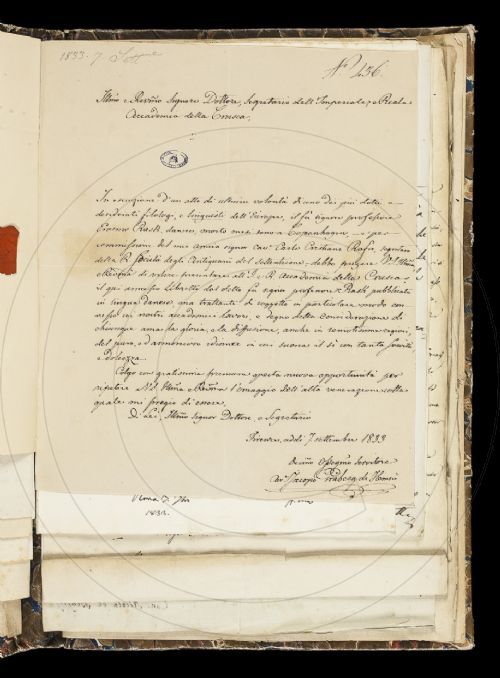 1833. 7 Settbre
N.º 436.
Illmo e Revmo Signore Dottore, Segretario dell'Imperiale, e Reale
Accademia della Crusca,
In esecuzione d'un atto di ultima volontà di uno dei più dotti, e
desiderati filologi, e linguisti dell'Europa, il fu signore professore
Erasmo Rask, danese, morto mesi sono a Copenhagen, e per
commissione del mio amico signor Cav. Carlo Cristiano Rafn, segretario
della R. Società degli Antiquari del Settentrione, debbo pregare V. S. Illma
e Revma di volere presentare all'I. e R. Accademia della Crusca
il qui annesso Libretto dal detto fu signor professore Rask pubblicato
in lingua danese una trattante di soggetto in particolare modo con-
nesso coi nostri accademici lavori, e degno della considerazione di
chiunque ama la gloria, e la diffusione, anche in remotissime regioni,
del puro, ed armonioso idioma in cui suona il sì con tanta soavità
e dolcezza.
Colgo con qualissima premura questa nuova opportunità per
ripetere a V. S. Illma e Revma l'omaggio dell'alta venerazione colla
quale mi pregio di essere,
Di Lei, Illmo Signor Dottore, e Segretario
Firenze, addì 7. settembre 1833
Devmo Obbligmo Servitore
Cav. Jacopo Graberg da Hemsö
1833.